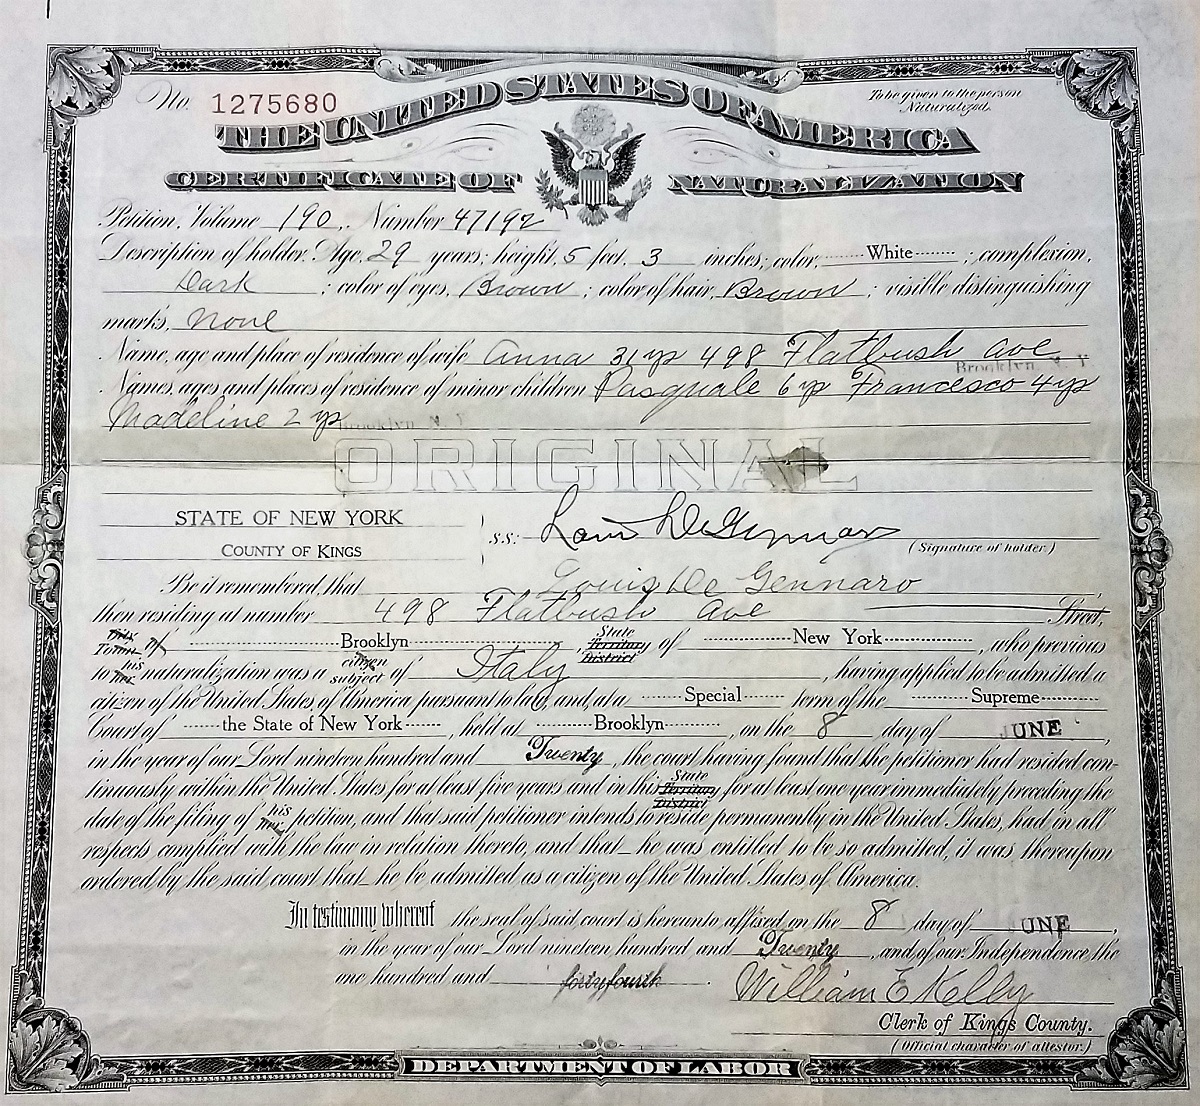 No. 1275680
To be given to the person Naturalized.
THE UNITED STATES OF AMERICA
CERTIFICATE OF NATURALIZATION
Petition, Volume 190, Number 47192
Description of holder. Age, 29 years; height, 5 feet, 3 inches; color, White; complexion,
Dark; color of eyes, Brown; color of hair, Brown; visible distinguishing
marks, None
Name, age and place of residence of wife Anna 31 yrs 498 Flatbush Ave
Brooklyn N. Y.
Names, ages and places of residence of minor children Pasquale 6 yrs Francesco 4 yrs
Madeline 2 yrs Brooklyn N. Y.
ORIGINAL
STATE OF NEW YORK
COUNTY OF KINGS
s.s.: Louis DeGennaro
(Signature of holder.)
Be it remembered, that Louis De Gennaro
then residing at number 498 Flatbush Ave Street,
City Town of Brooklyn, State Territory District of New York, who previous
to his her naturalization was a citizen subject of Italy, having applied to be admitted a
citizen of the United States of America pursuant to law, and, at a Special term of the Supreme
Court of the State of New York, held at Brooklyn, on the 8 day of JUNE,
in the year of our Lord nineteen hundred and Twenty, the court having found that the petitioner had resided con-
tinuously within the United States for at least five years and in this State Territory District for at least one year immediately preceding the
date of the filing of his her petition, and that said petitioner intends to reside permanently in the United States, had in all
respects complied with the law in relation thereto, and that he was entitled to be so admitted, it was thereupon
ordered by the said court that he be admitted as a citizen of the United States of America.
In testimony whereof the seal of said court is hereunto affixed on the 8 day of JUNE,
in the year of our Lord nineteen hundred and Twenty, and of our Independence the
one hundred and forty fourth.
William E Kelly
Clerk of Kings County.
(Official character of attestor.)
DEPARTMENT OF LABOR